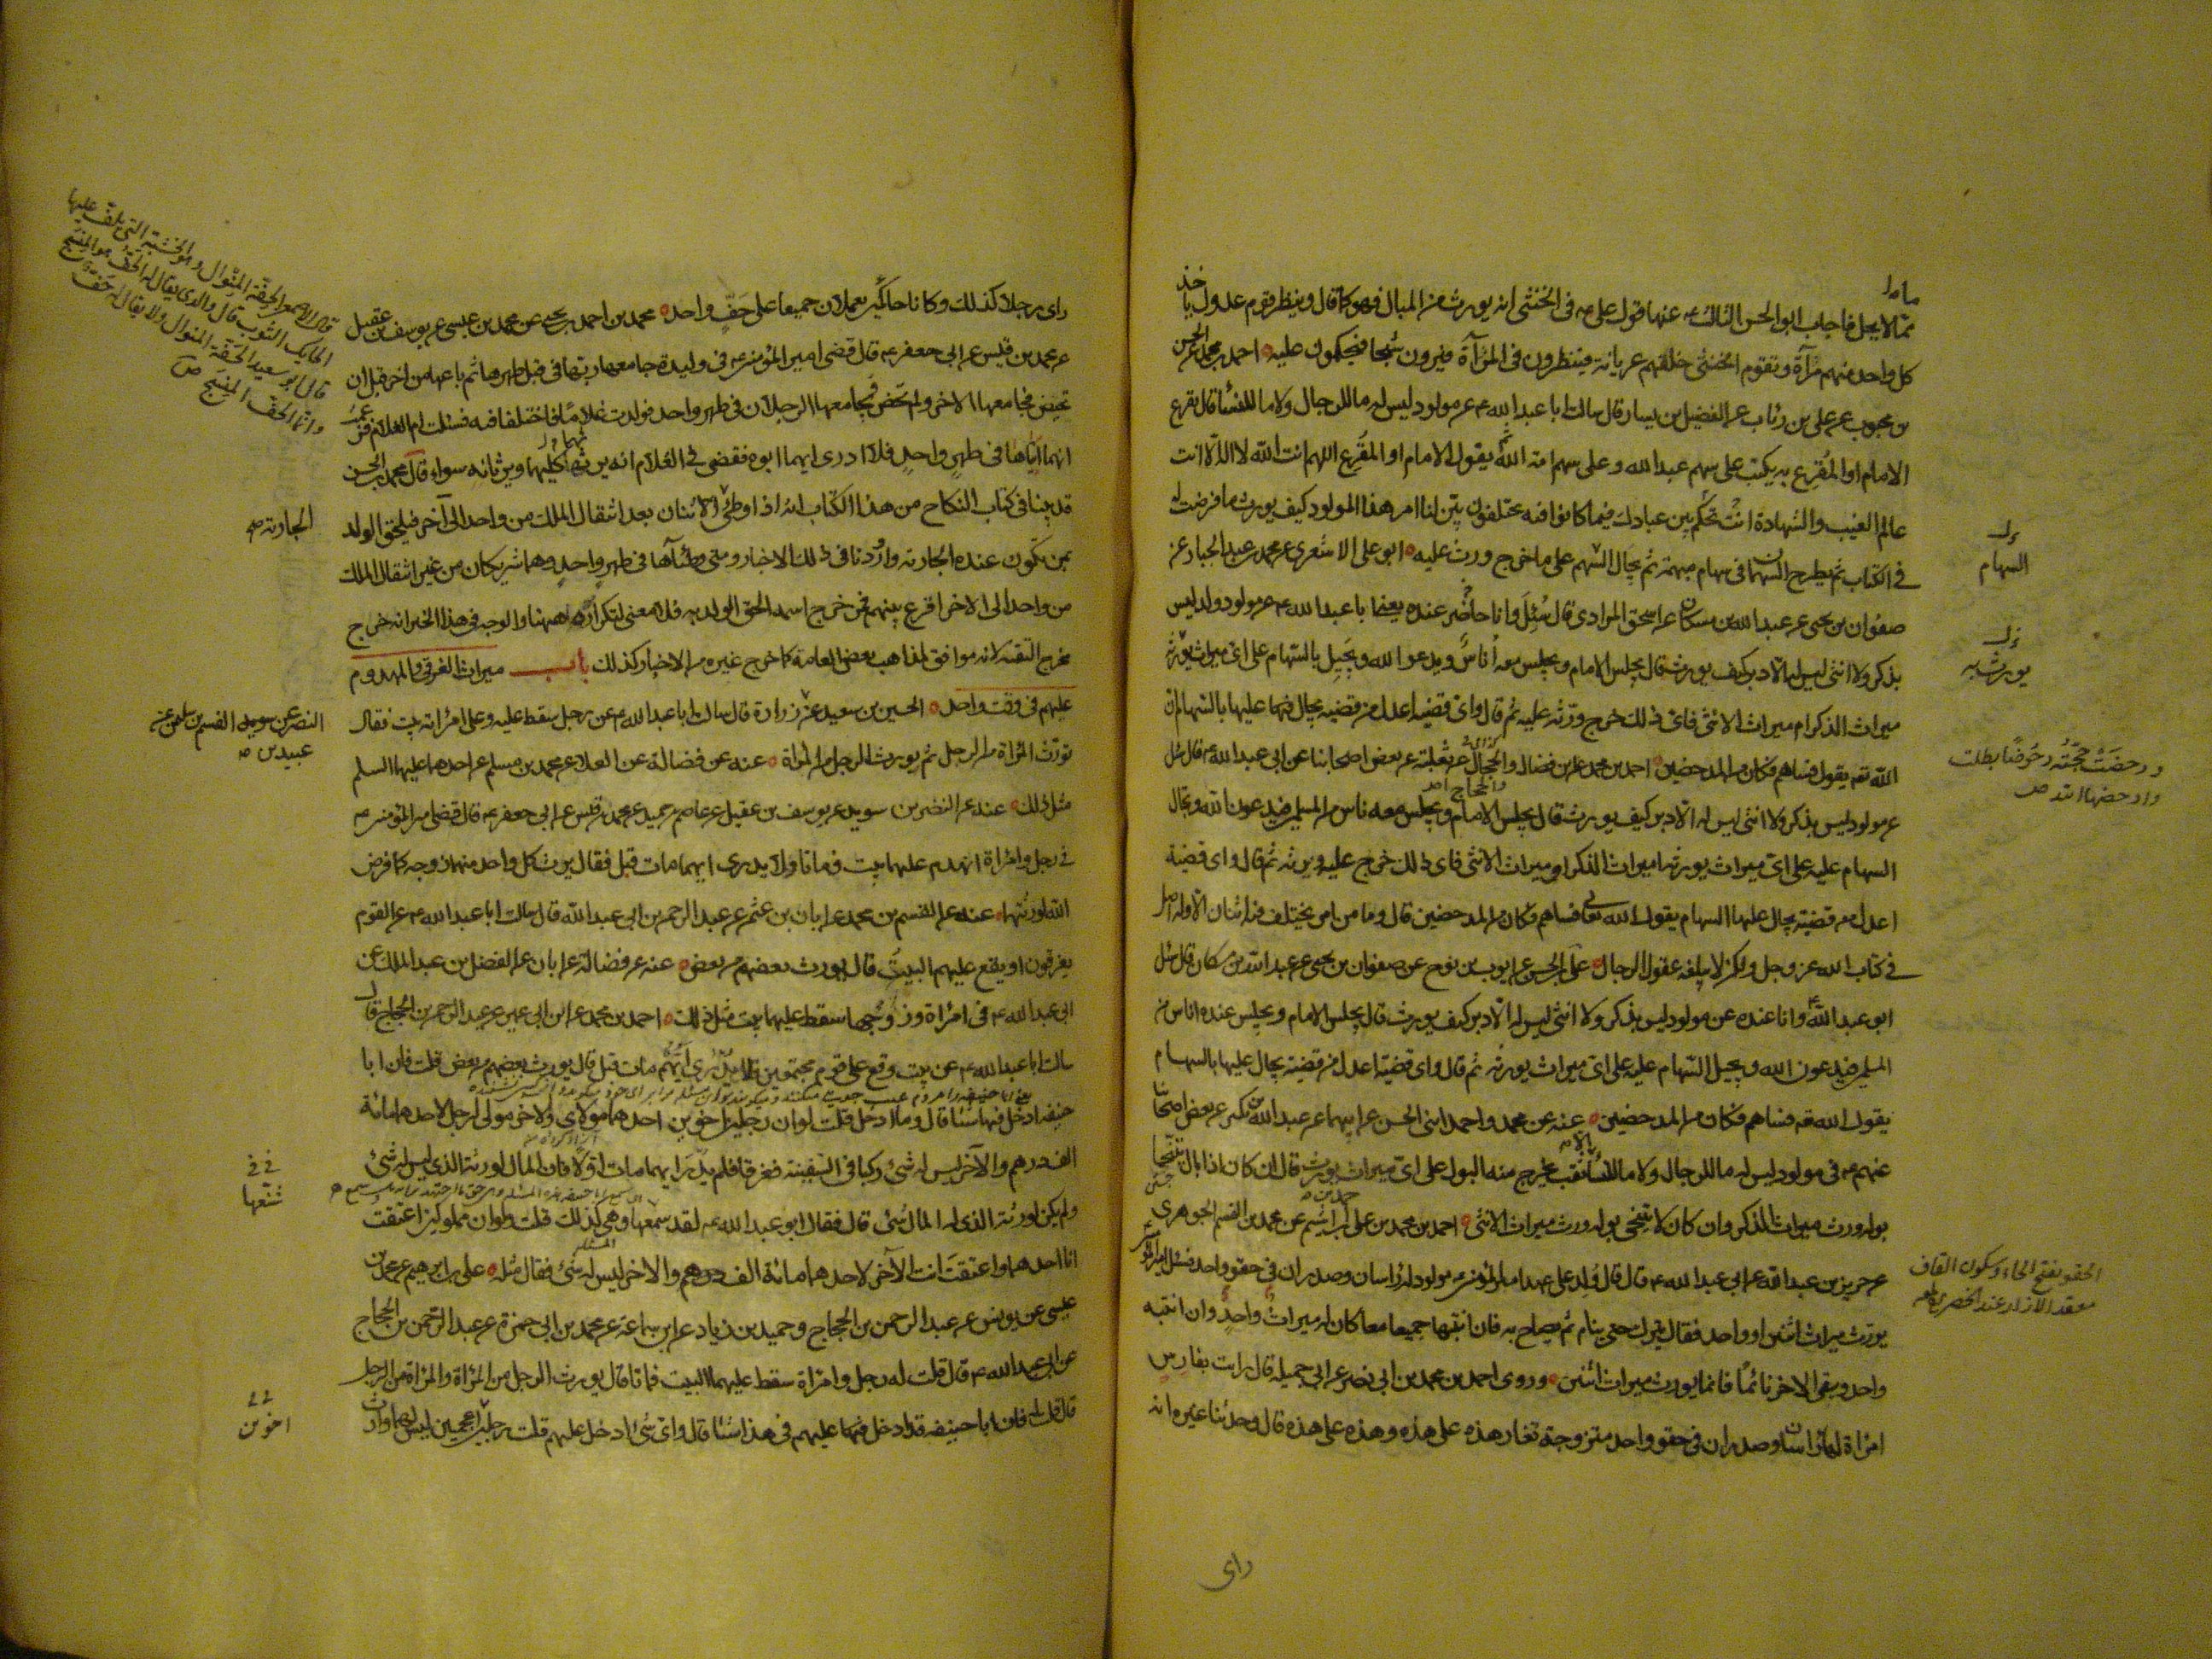 مما لا يحل فاجاب ابو الحسن الثالث عه عنها قول علي عه في الخنثى انه يورث من المبال فهو كما قال وينظر قوم عدول ياخذ
كل واحد منهم مرآة وتقوم الخنثى خلفهم عريانة فينظرون في المرآة فيرون شبحا فيحكمون عليه احمد بن محمد عن الحسن
بن محبوب عن علي بن رئاب عن الفضيل بن يسار قال سالت ابا عبد الله ع عن مولود ليس له ما للرجال ولا ما للنساء قال يقرع
الامام او المقرع به يكتب على سهم عبد الله وعلى سهم امة الله ثم يقول الامام او المقرع اللهم انت الله لا اله الا انت
عالم الغيب والشهادة انت تحكم بين عبادك فيما كانوا فيه يختلفون بين لنا امر هذا المولود كيف يورث ما فرضت له
في الكتاب ثم يطرح السهمان في سهام مبهمة ثم يجال السهم على ما خرج ورث عليه ابو علي الاشعري عن محمد بن عبد الجبار عن
صفوان بن يحيى عن عبد الله بن مسكان عن اسحق المرادي قال سئل وانا حاضر عنده يعني ابا عبد الله ع عن مولود ولد ليس
بذكر ولا انثى ليس له الا دبر كيف يورث قال يجلس الامام ويجلس معه اناس ويدعو الله ويجيل بالسهام على اي ميراث يورثه
ميراث الذكر ام ميراث الانثى فاي ذلك خرج ورثه عليه ثم قال واي قضية اعدل من قضية يجال فيها عليها بالسهام ان
الله تعه يقول فساهم فكان من المدحضين احمد بن محمد عن بن فضال والحجال عن ثعلبة عن بعض اصحابنا عن ابي عبد الله ع قال سئل
عن مولود ليس بذكر ولا انثى ليس له الا دبر كيف يورث قال يجلس الامام ويجلس معه ناس من المسلمين فيدعون الله وتجال
السهام عليه على اي ميراث يورثه اميراث الذكر او ميراث الانثى فاي ذلك خرج عليه ويرثه ثم قال واي قضية
اعدل من قضية يجال عليها السهام يقول الله تعالى فساهم فكان من المدحضين قال وما من امر يختلف فيه اثنان الا وله اصل
في كتاب الله عز وجل ولكن لا يبلغه عقول الرجال علي بن الحسن عن ايوب بن نوح عن صفوان بن يحيى عن عبد الله بن مسكان قال سئل
ابو عبد الله وانا عنده عن مولود ليس بذكر ولا انثى ليس له الا دبر كيف يورث قال يجلس الامام ويجلس عنده اناس من
المسلمين فيدعون الله ويجيل السهام عليه على اي ميراث يورثه ثم قال واي قضية اعدل من قضية يجال عليها بالسهام
يقول الله تعه فساهم فكان من المدحضين عنه عن محمد واحمد ابني الحسن عن ابيهما عن عبد الله بن بكير عن بعض اصحابنا
عنهم ع في مولود ليس له ما للرجال ولا ما للنساء الا ثقب يخرج منه البول على اي ميراث يورث قال ان كان اذا بال يتنحى
بوله ورث ميراث الذكر وان كان لا يتنحى بوله ورث ميراث الانثى احمد بن محمد بن علي بن اشيم عن محمد بن القسم الجوهري
عن حريز بن عبد الله عن ابي عبد الله ع قال قال ولد على عهد امير المؤمنين ع مولود له راسان وصدران في حقو واحد فسئل امير المؤ
يورث ميراث اثنين او واحد فقال يترك حتى ينام ثم يصاح به فان انتبها جميعا معا كان له ميراث واحد وان انتبه
واحد وبقي الاخر نائما فانما يورث ميراث اثنين وروى احمد بن محمد بن ابي نصر عن ابي جميلة قال رايت بفارس
امراة لها راسان وصدران في حقو واحد متزوجة تغار هذه على هذه وهذه على هذه قال وحدثنا غيره انه
السهام
يورث به
ودحضت حجته دحوضا بطلت
وادحضها الله ص
الحقو بفتح الحاء وسكون القاف
معقد الازار عند الخصر
راى
راى رجلا كذلك وكانا حاكين يعملان جميعا على حف واحد محمد بن احمد بن يحيى عن محمد بن عيسى عن يوسف بن عقيل
عن محمد بن قيس عن ابي جعفر عه قال قضى امير المؤمنين عه في وليدة جامعها ربها في قبل طهرها ثم باعها من اخر قبل ان
تحيض فجامعها الاخر ولم تحض فجامعها الرجلان في طهر واحد فولدت غلاما فاختلفا فيه فسئلت ام الغلام فزعمت
انهما اتياها في طهر واحد فلا ادرى ايهما ابوه فقضى في الغلام انه يرثهما كليهما ويرثانه سواء قال محمد بن الحسن
قد بينا في كتاب النكاح من هذا الكتاب انه اذا وطئ الاثنان بعد انتقال الملك من واحد الى آخر فيلحق الولد
بمن تكون عنده الجارية واوردنا في ذلك الاخبار ومتى وطئآها في طهر واحد وهما شريكان من غير انتقال الملك
من واحد الى الاخر اقرع بينهم فمن خرج اسمه الحق الولد به فلا معنى لتكراره ههنا والوجه في هذا الخبر انه خرج
مخرج التقية لانه موافق لمذاهب بعض العامة كما خرج غيره من الاخبار كذلك باب ميراث الغرقى والمهدوم
عليهم في وقت واحد الحسين بن سعيد عن زرارة قال سالت ابا عبد الله ع عن رجل سقط عليه وعلى امراته بيت فقال
تورث المراة من الرجل ثم يورث الرجل من المراة عنه عن فضالة عن العلاء عن محمد بن مسلم عن احدهما عليهما السلم
مثل ذلك عنه عن النضر بن سويد عن يوسف بن عقيل عن عاصم بن حميد عن محمد بن قيس عن ابي جعفر عه قال قضى امير المؤمنين عه
في رجل وامراة انهدم عليهما بيت فماتا ولا يدرى ايهما مات قبل فقال يرث كل واحد منهما زوجه كما فرض
الله لورثتهما عنه عن القسم بن محمد عن ابان بن عثمن عن عبد الرحمن بن ابي عبد الله قال سالت ابا عبد الله ع عن القوم
يغرقون او يقع عليهم البيت قال يورث بعضهم من بعض عنه عن فضالة عن ابان عن الفضل بن عبد الملك عن
ابي عبد الله ع في امراة وزوجها سقط عليهما بيت مثل ذلك احمد بن محمد عن ابن ابي عمير عن عبد الرحمن بن الحجاج قال
سالت ابا عبد الله ع عن بيت وقع على قوم مجتمعين فلا يدرى ايهم مات قبل قال يورث بعضهم من بعض قلت فان ابا
حنيفة ادخل فيها شيئا قال وما ادخل قلت لو ان رجلين اخوين احدهما مولاى والاخر مولى لرجل لاحدهما مائة
الف درهم والآخر ليس له شئ ركبا في السفينة فغرقا فلم يدر ايهما مات اولا فان المال لورثة الذي ليس له شئ
ولم يكن لورثة الذي له المال شئ قال فقال ابو عبد الله عه لقد سمعها وهي كذلك قلت ولو ان مملوكين اعتقت
انا احدهما واعتقت انت الآخر لاحدهما مائة الف درهم والاخر ليس له شئ فقال مثله علي بن ابرهيم عن محمد بن
عيسى عن يونس عن عبد الرحمن بن الحجاج وحميد بن زياد عن ابن سماعة عن محمد بن ابي حمزة عن عبد الرحمن بن الحجاج
عن ابي عبد الله ع قال قلت له رجل وامراة سقط عليهما البيت فماتا قال يورث الرجل من المراة والمراة من الرجل
قال قلت فان ابا حنيفة قد ادخل فيها عليهم في هذا شيئا قال واى شئ ادخل عليهم قلت رجلين اعجميين ليس لهما وارث
قال الاصمعي الحفة المنوال وهو الخشبة التي يلف عليها
الحايك الثوب قال والذي يقال له الحف هو المنسج
قال ابو سعيد الحفة المنوال ولا يقال له حف
وانما الحف المنسج ص
الجارية
النضر عن
عبيد بن
شنعها
اخوين